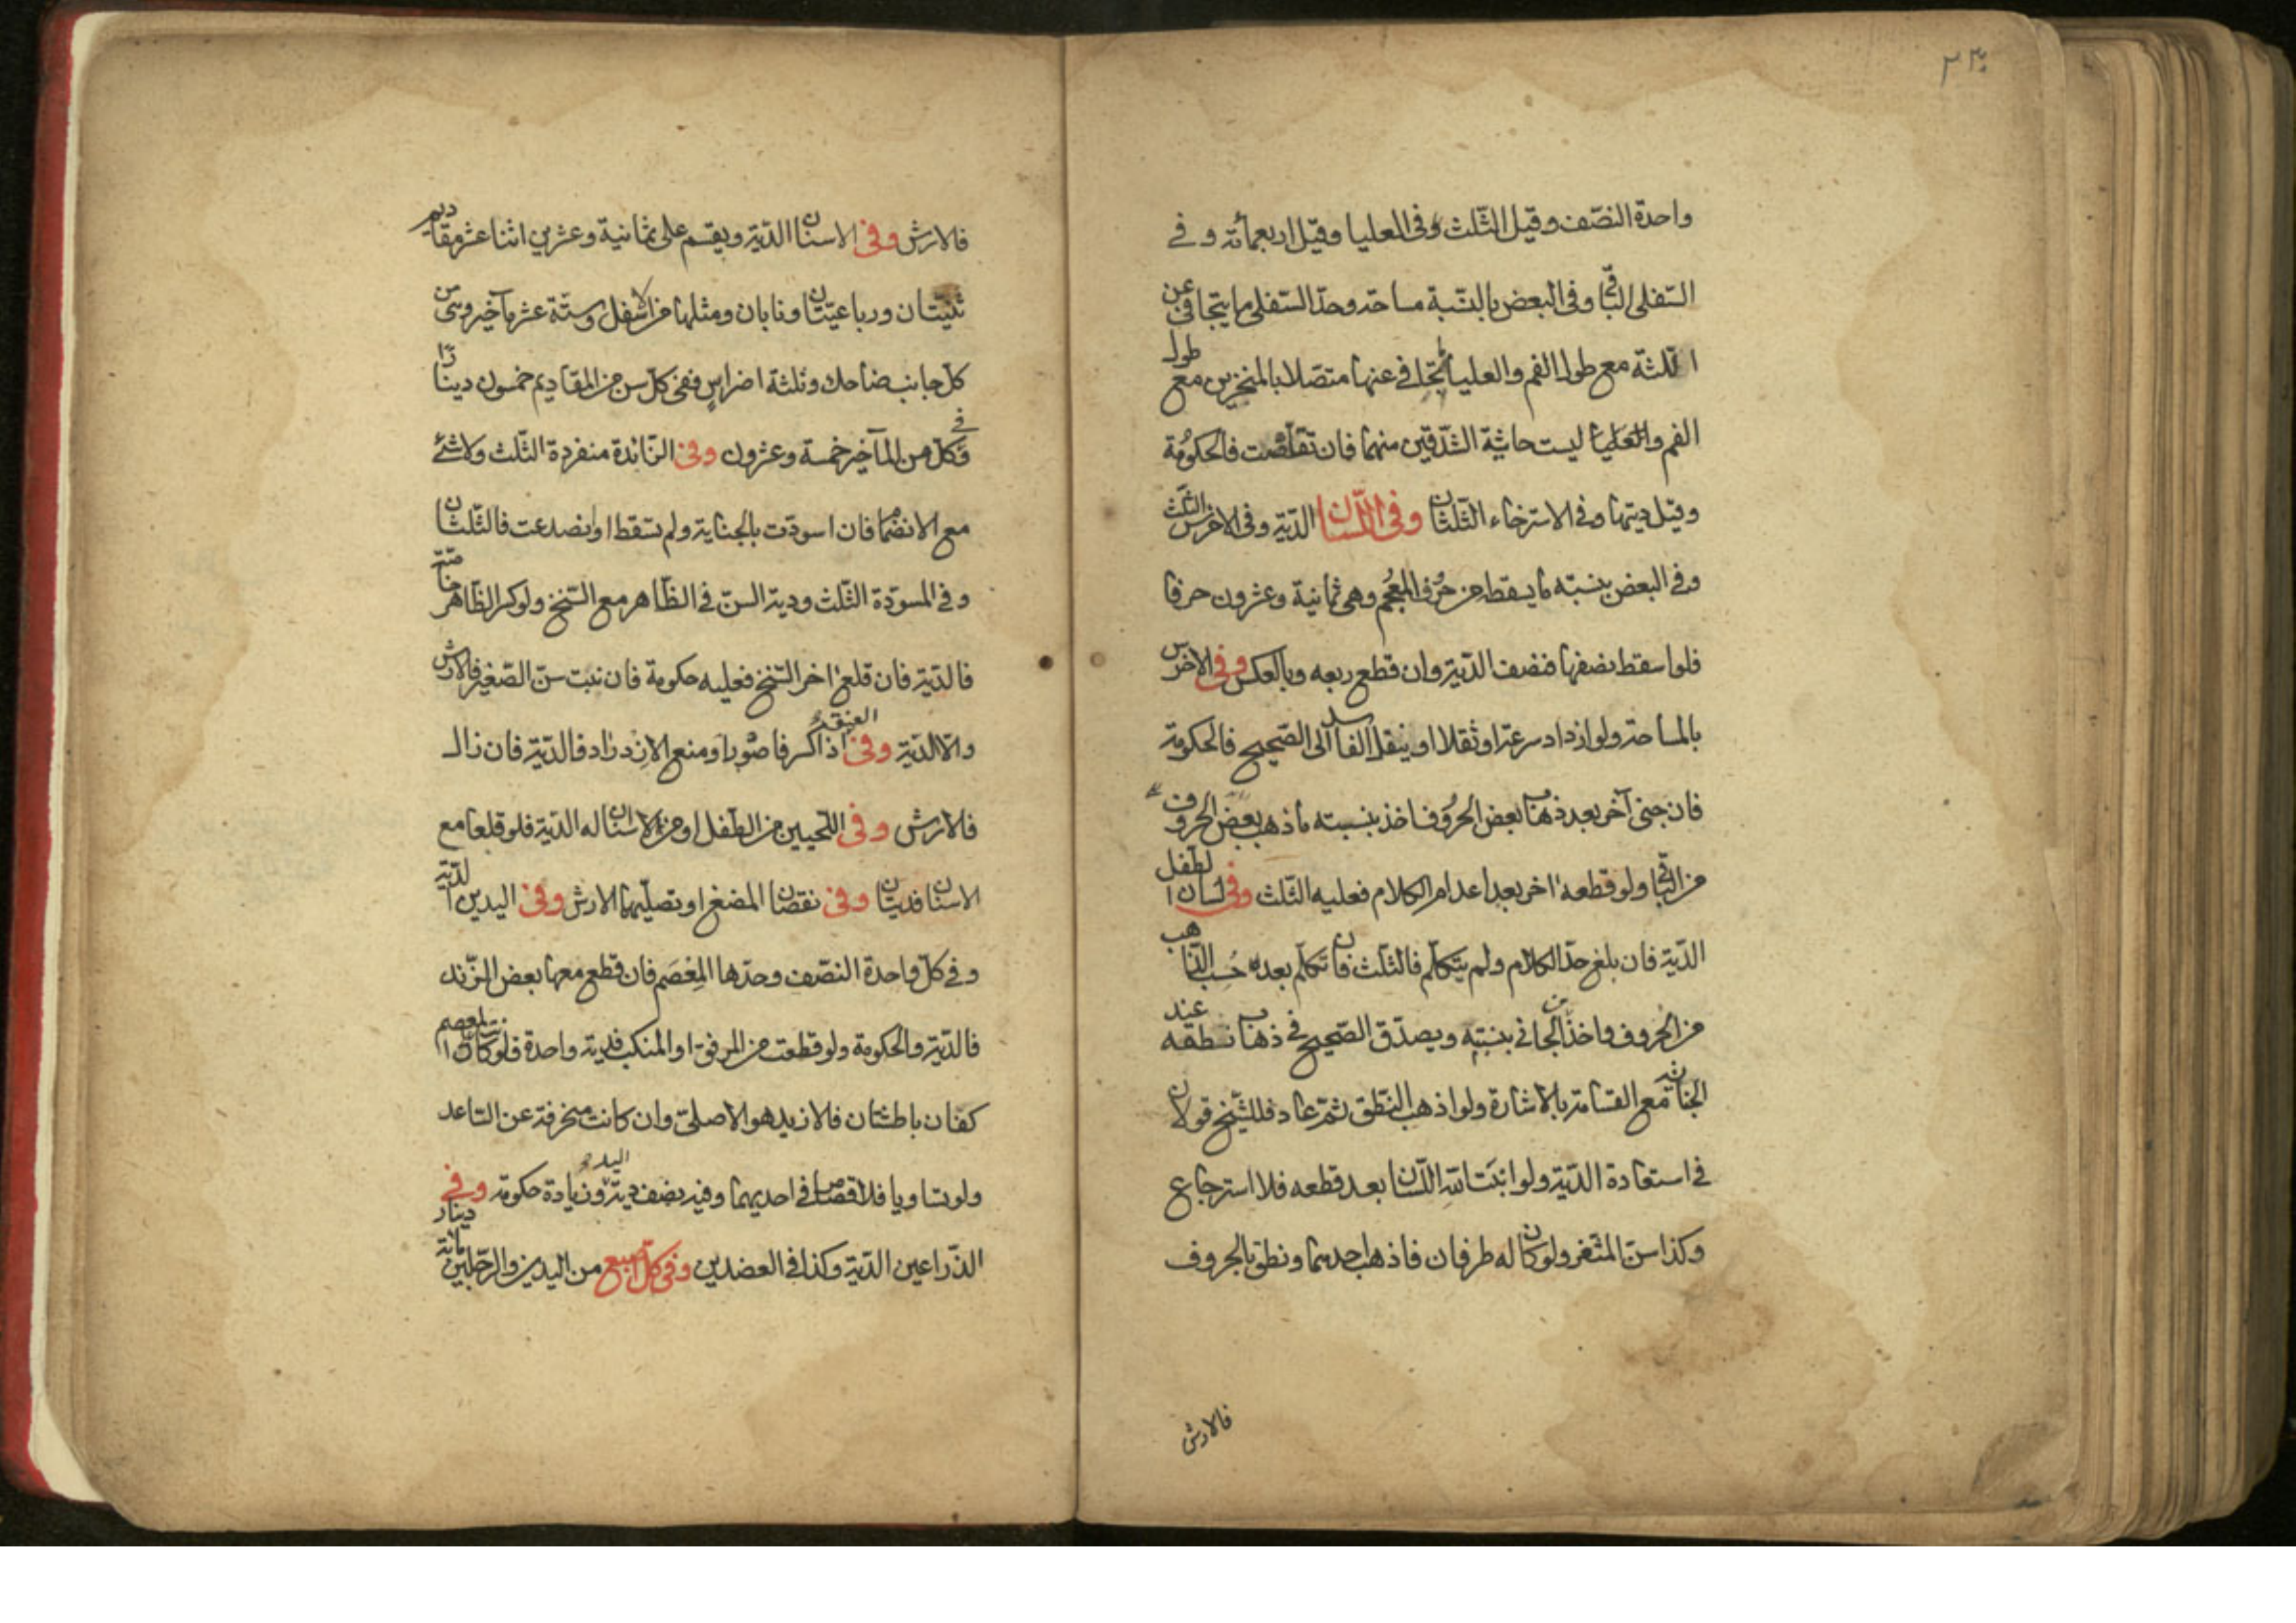 واحدة النصف وقيل الثلث وفى العليا وقيل اربعمائة وفي
السفلى الباقى وفى البعض بالنسبة مساحة وحد السفلى ما يتجافى عن
اللثة مع طول الفم والعليا ما يتجافى عنها متصلا بالمنخرين مع طول
الفم والعليا ليست حاشية الشدقين منهما فان تقلصت فالحكومة
وقيل ديتها وفى الاسترخاء الثلثان وفى اللسان الدية وفى الاخرس الثلث
وفى البعض بنسبة ما يسقط من حروف المعجم وهى ثمانية وعشرون حرفا
فلو اسقط نصفها فنصف الدية وان قطع ربعه وبالعكس وفى الاخرس
بالمساحة ولو ازداد سرعة او ثقلا او ينقل الفاسد الى الصحيح فالحكومة
فان جنى آخر بعد ذهاب بعض الحروف اخذ بنسبة ما ذهب بعض الحروف
من الباقى ولو قطعه اخر بعد اعدام الكلام فعليه الثلث وفى لسان الطفل
الدية فان بلغ حد الكلام ولم يتكلم فالثلث فان تكلم بعده حسب الذاهب
من الحروف واخذ من الجانى بنسبته ويصدق الصحيح فى ذهاب نطقه عند
الجناية مع القسامة بالاشارة ولو اذهب النطق ثم عاد فللشيخ قولان
فى استعادة الدية ولو انبت الله اللسان بعد قطعه فلا استرجاع
وكذا سن المثغر ولو كان له طرفان فاذهب احديهما ونطق بالحروف
فالارش
فالارش وفى الاسنان الدية ويقسم على ثمانية وعشرين اثنا عشر مقاديم
ثنيتان ورباعيتان ونابان ومثلها من الاسفل وستة عشر مآخير وهى من
كل جانب ضاحك وثلثة اضراس ففى كل سن من المقاديم خمسون دينارا
وفي كل من المآخير خمسة وعشرون وفى الزائدة منفردة الثلث ولا شئ
مع الانضمام فان اسودت بالجناية ولم تسقط او انصدعت فالثلثان
وفى المسودة الثلث ودية السن فى الظاهر مع السنخ ولو كسر الظاهر خاصة
فالدية فان قلع اخر السنخ فعليه حكومة فان نبت سن الصغير فالارش
والا الدية وفى العنق اذا كسر فاصور او منع الازدراد فالدية فان زال
فالارش وفى اللحيين من الطفل او من لا اسنان له الدية فلو قلعا مع
الاسنان فديتان وفى نقصان المضغ او تصليبها الارش وفى اليدين الدية
وفى كل واحدة النصف وحدها المعصم فان قطع معها بعض الزند
فالدية والحكومة ولو قطعت من المرفق او المنكب فدية واحدة فلو كان للمعصم
كفان باطشتان فالازيد هو الاصلى وان كانت منحرفة عن الساعد
ولو تساويا فلا قصاص فى احديهما وفيه نصف دية اليد وزيادة حكومة وفي
الذراعين الدية وكذا فى العضدين وفى كل اصبع من اليدين والرجلين مائة دينار